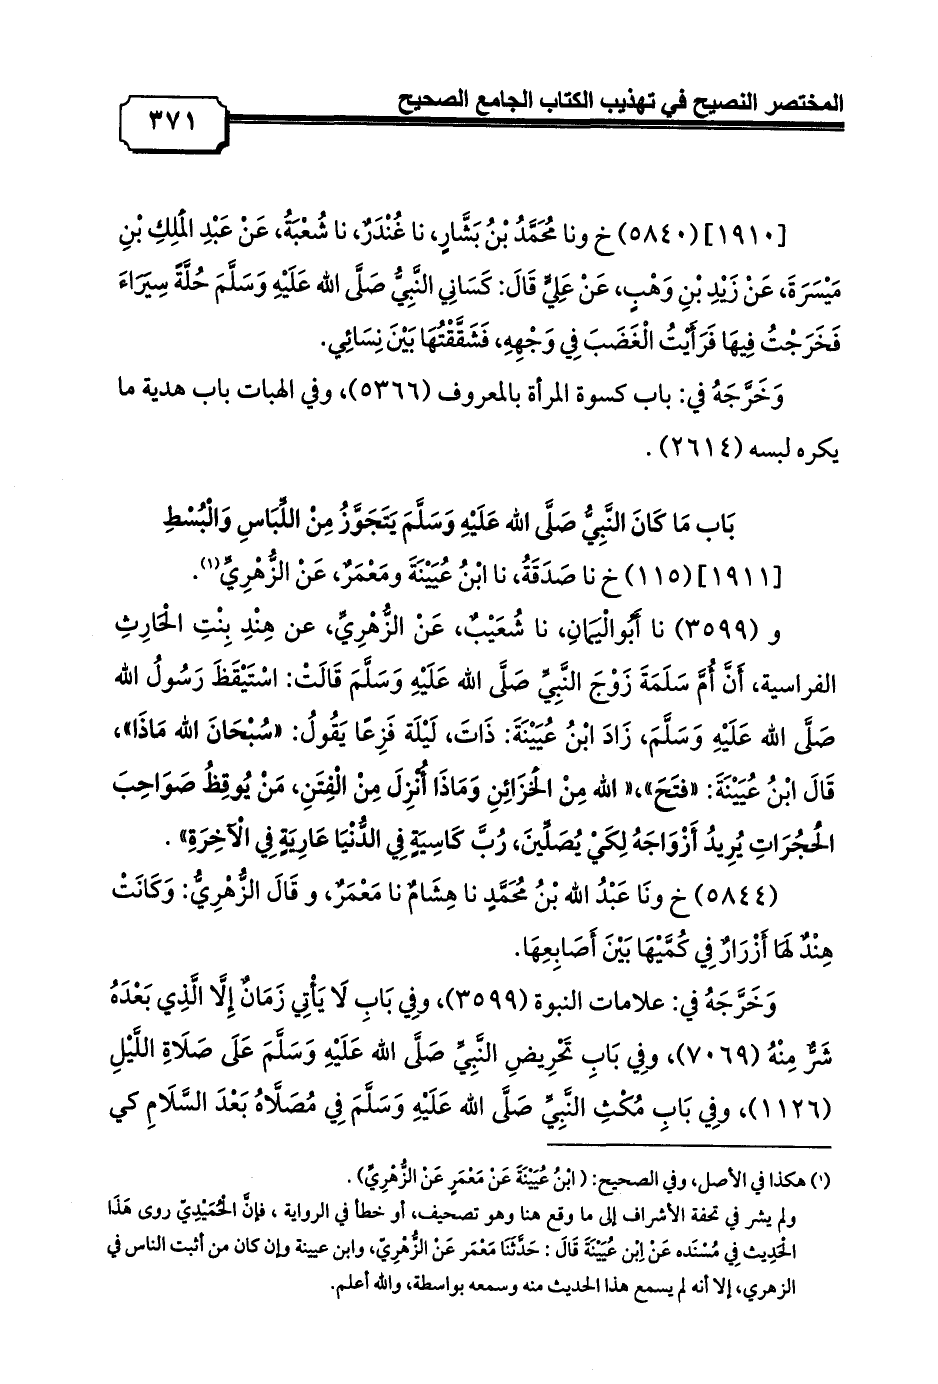 المختصر النصيح في تهذيب الكتاب الجامع الصحيح
٣٧١
[١٩١٠] (٥٨٤٠) خ ونا مُحَمَّدُ بْنُ بَشَّارٍ، نا غُنْدَرٌ، نا شُعْبَةُ، عَنْ عَبْدِ الْمَلِكِ بْنِ
مَيْسَرَةَ، عَنْ زَيْدِ بْنِ وَهْبٍ، عَنْ عَلِيٍّ قَالَ: كَسَانِي النَّبِيُّ صَلَّى الله عَلَيْهِ وَسَلَّمَ حُلَّةً سِيَرَاءَ
فَخَرَجْتُ فِيهَا فَرَأَيْتُ الْغَضَبَ فِي وَجْهِهِ، فَشَقَّقْتُهَا بَيْنَ نِسَائِي.
وَخَرَّجَهُ في: باب كسوة المرأة بالمعروف (٥٣٦٦)، وفي الهبات باب هدية ما
يكره لبسه (٢٦١٤) .
بَاب مَا كَانَ النَّبِيُّ صَلَّى الله عَلَيْهِ وَسَلَّمَ يَتَجَوَّزُ مِنْ اللِّبَاسِ وَالْبُسْطِ
[١٩١١] (١١٥) خ نا صَدَقَةُ، نا ابْنُ عُيَيْنَةَ ومَعْمَرٌ، عَنْ الزُّهْرِيِّ(١).
و (٣٥٩٩) نا أَبُوالْيَمَانِ، نا شُعَيْبٌ، عَنْ الزُّهْرِيِّ، عن هِنْدِ بِنْتِ الْحَارِثِ
الفراسية، أَنَّ أُمَّ سَلَمَةَ زَوْجَ النَّبِيِّ صَلَّى الله عَلَيْهِ وَسَلَّمَ قَالَتْ: اسْتَيْقَظَ رَسُولُ الله
صَلَّى الله عَلَيْهِ وَسَلَّمَ، زَادَ ابْنُ عُيَيْنَةَ: ذَاتَ، لَيْلَة فَزِعًا يَقُولُ: «سُبْحَانَ الله مَاذَا»،
قَالَ ابْنُ عُيَيْنَةَ: «فتَحَ»،« الله مِنْ الْخَزَائِنِ وَمَاذَا أُنْزِلَ مِنْ الْفِتَنِ، مَنْ يُوقِظُ صَوَاحِبَ
الْحُجُرَاتِ يُرِيدُ أَزْوَاجَهُ لِكَيْ يُصَلِّينَ، رُبَّ كَاسِيَةٍ فِي الدُّنْيَا عَارِيَةٍ فِي الْآخِرَةِ» .
(٥٨٤٤) خ ونَا عَبْدُ الله بْنُ مُحَمَّدٍ نا هِشَامٌ نا مَعْمَرٌ، و قَالَ الزُّهْرِيُّ: وَكَانَتْ
هِنْدٌ لَهَا أَزْرَارٌ فِي كُمَّيْهَا بَيْنَ أَصَابِعِهَا.
وَخَرَّجَهُ في: علامات النبوة (٣٥٩٩)، وفِي بَابِ لَا يَأْتِي زَمَانٌ إِلَّا الَّذِي بَعْدَهُ
شَرٌّ مِنْهُ (٧٠٦٩)، وفِي بَابِ تَحْرِيضِ النَّبِيِّ صَلَّى الله عَلَيْهِ وَسَلَّمَ عَلَى صَلَاةِ اللَّيْلِ
(١١٢٦)، وفِي بَابِ مُكْثِ النَّبِيِّ صَلَّى الله عَلَيْهِ وَسَلَّمَ فِي مُصَلَّاهُ بَعْدَ السَّلَامِ كي
(١) هكذا في الأصل، وفي الصحيح: ( ابْنُ عُيَيْنَةَ عَنْ مَعْمَرٍ عَنْ الزُّهْرِيِّ) .
ولم يشر في تحفة الأشراف إلى ما وقع هنا وهو تصحيف، أو خطأ في الرواية ، فإنَّ الْحُمَيْدِيّ روى هَذَا
الْحَدِيث فِي مُسْنَده عَنْ اِبْن عُيَيْنَةَ قَالَ : حَدَّثَنَا مَعْمَر عَنْ الزُّهْرِيّ، وابن عيينة وإن كان من أثبت الناس في
الزهري، إلا أنه لم يسمع هذا الحديث منه وسمعه بواسطة، والله أعلم.